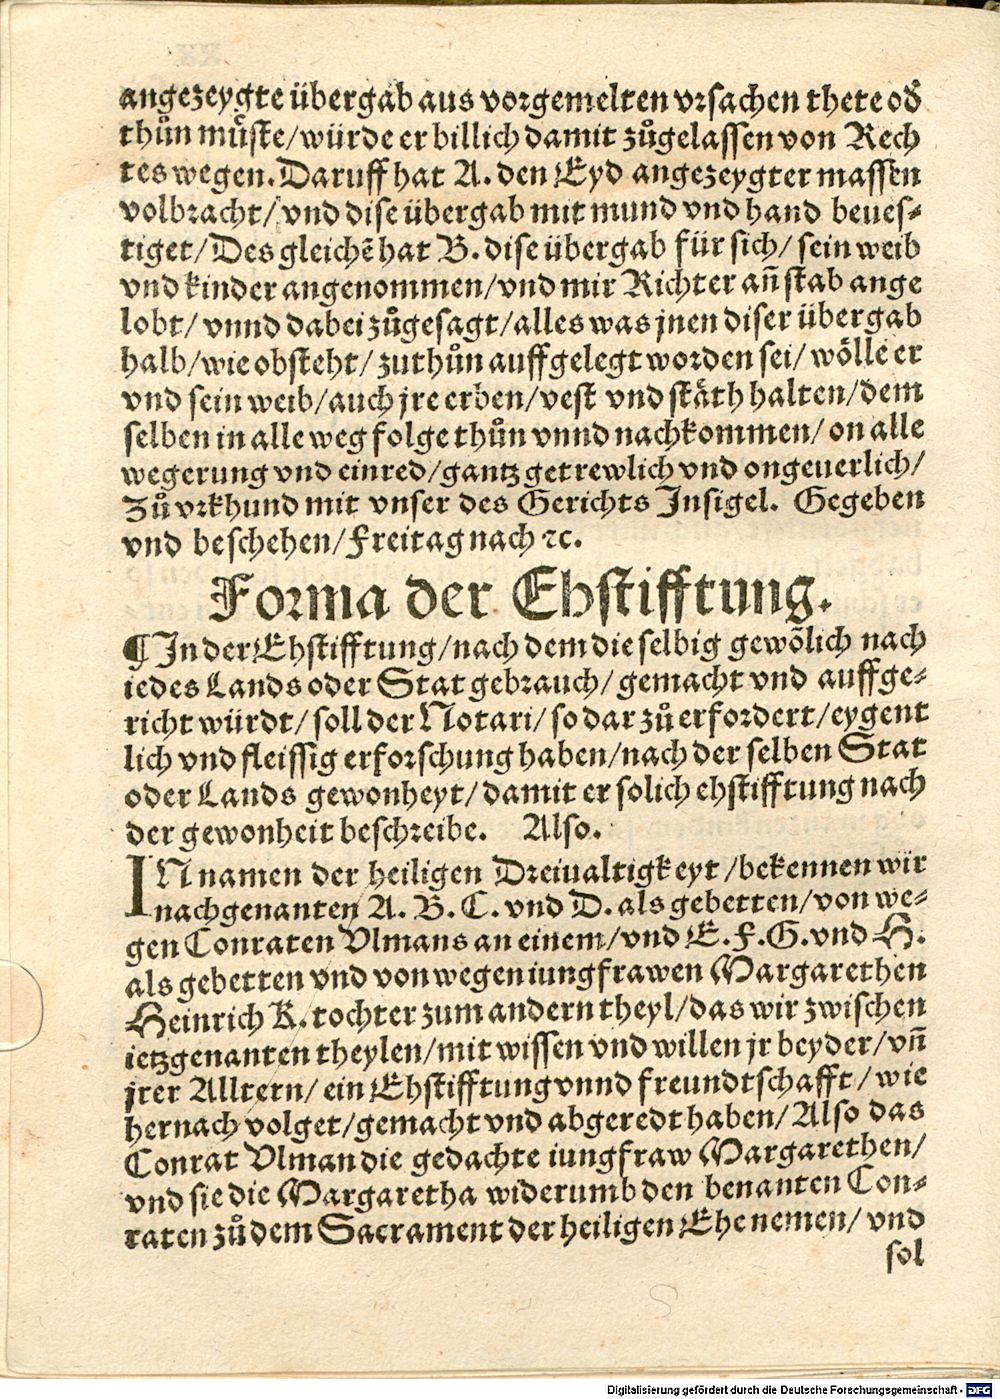 angezeygte übergab aus vorgemelten vrsachen thete od̄
thůn mu̇ſte/würde er billich damit zůgelaſſen von Rech
tes wegen. Daruff hat A. den Eyd angezeygter maſſen
volbracht/ vnd diſe übergab mit mund vnd hand beueſ⸗
tiget/ Des gleichē hat B. diſe übergab für ſich/ ſein weib
vnd kinder angenommen/vnd mir Richter an̄ ſtab ange
lobt/ vnnd dabei zůgeſagt/alles was jnen diſer übergab
halb/wie obſteht/ zuthůn auffgelegt worden ſei/ wölle er
vnd ſein weib/auch jre erben/veſt vnd ſtäth halten/dem
ſelben in alle weg folge thůn vnnd nachkommen/ on alle
wegerung vnd einred/gantz getrewlich vnd ongeuerlich/
Zů vrkhund mit vnſer des Gerichts Inſigel. Gegeben
vnd beſchehen/Freitag nach ꝛc.
Forma der Ehſtifftung.
¶ In der Ehſtifftung/nach dem die ſelbig gewōlich nach
iedes Lands oder Stat gebrauch/ gemacht vnd auffge⸗
richt würdt/ ſoll der Notari/ ſo dar zů erfordert/eygent
lich vnd fleiſſig erforſchung haben/nach der ſelben Stat
oder Lands gewonheyt/damit er ſolich ehſtifftung nach
der gewonheit beſchreibe. Alſo.
IN namen der heiligen Dreiualtigkeyt/bekennen wir
nachgenanten A. B. C. vnd D. als gebetten/von we⸗
gen Conraten Vlmans an einem/vnd E. F. G. vnd H.
als gebetten vnd von wegen iungfrawen Margarethen
Heinrich K. tochter zum andern theyl/das wir zwiſchen
ietzgenanten theylen/mit wiſſen vnd willen jr beyder/vn̄
jrer Alltern/ ein Ehſtifftung vnnd freundtſchafft/ wie
hernach volget/gemacht vnd abgeredt haben/ Alſo das
Conrat Vlman die gedachte iungfraw Margarethen/
vnd ſie die Margaretha widerumb den benanten Con⸗
raten zů dem Sacrament der heiligen Ehe nemen/ vnd
ſol
Digitalisierung gefördert durch die Deutsche Forschungsgemeinschaft - DFG